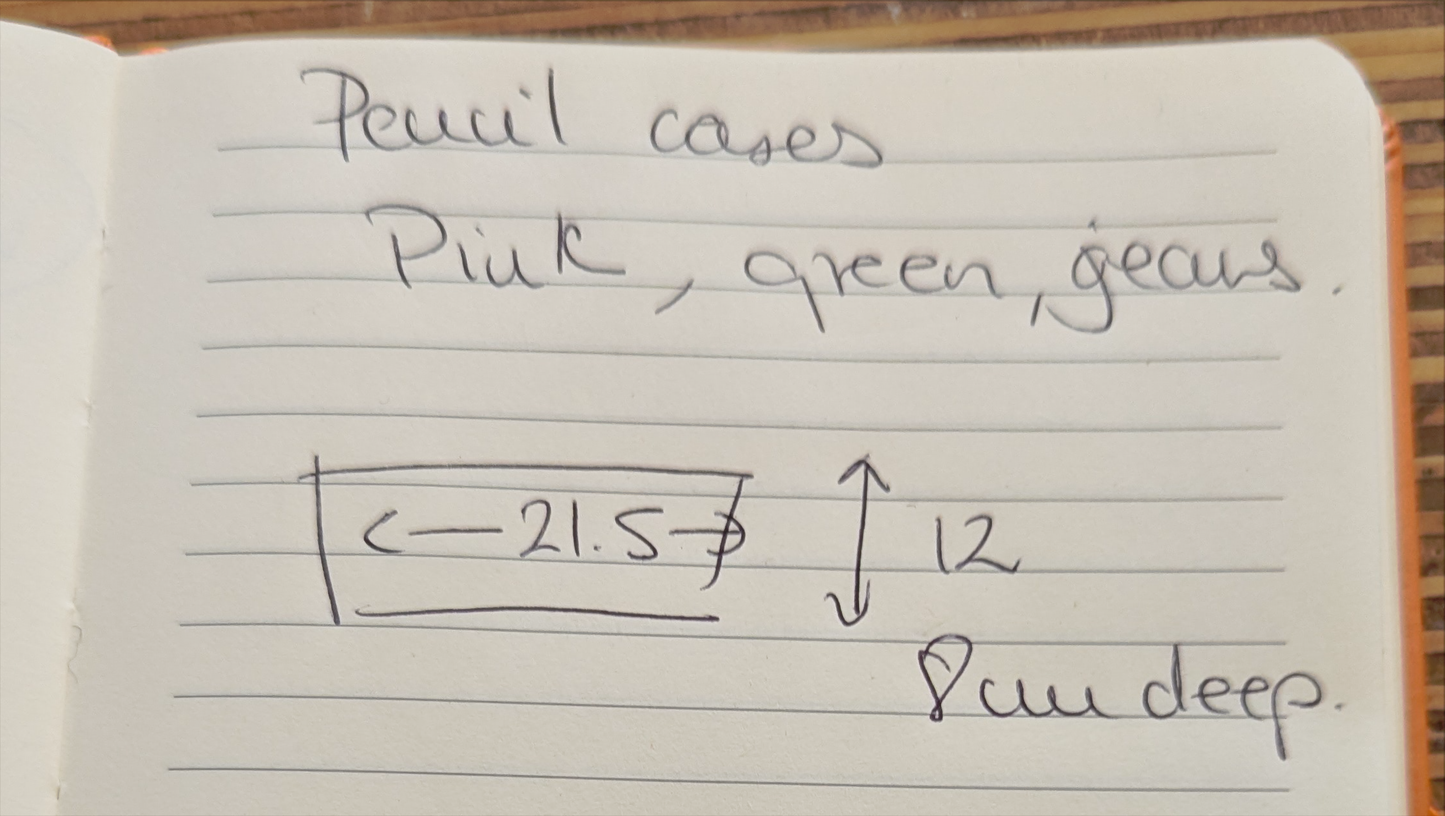 Pencil cases
Pink, green, gears.
21.5 12
8cm deep.